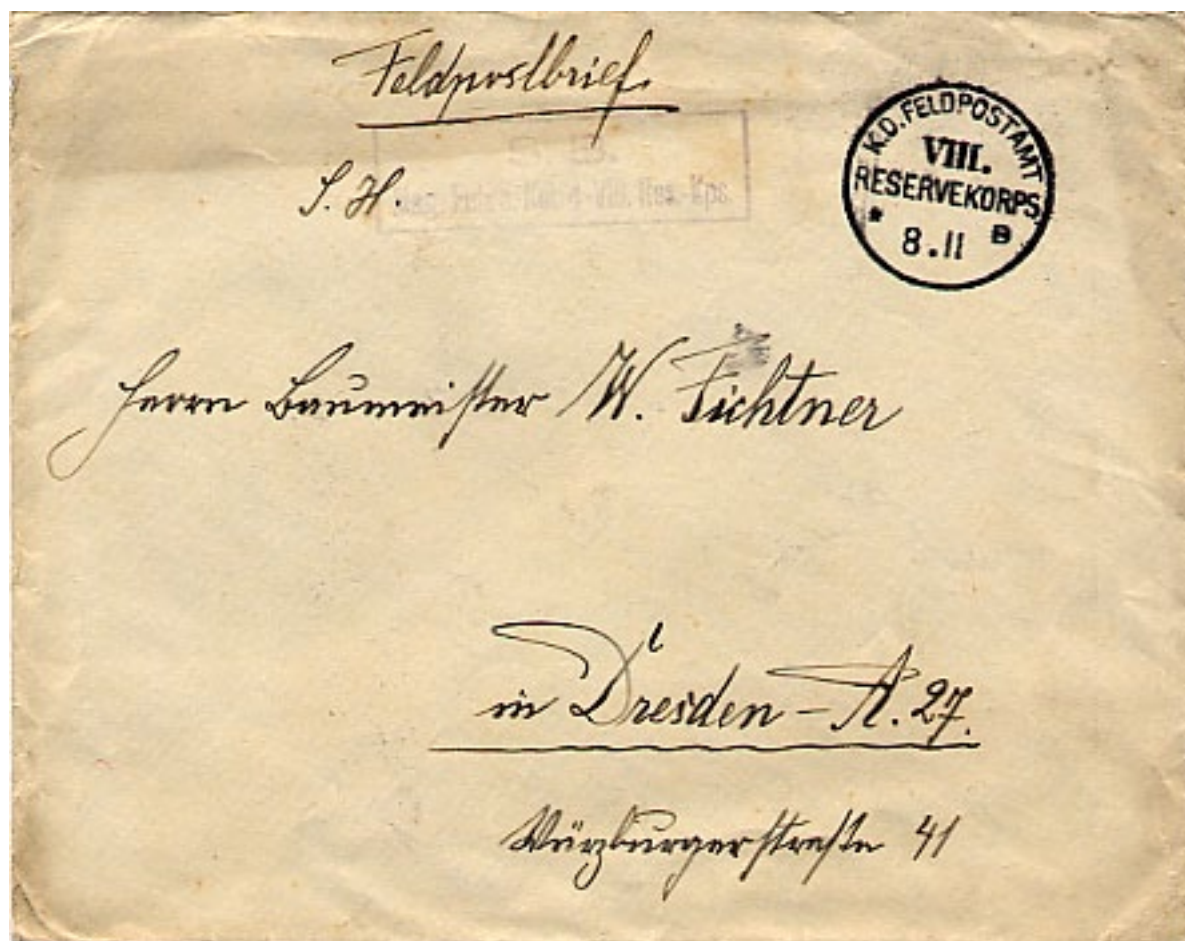 Feldpostbrief.
S. B.
S. H.
Mag. Fuhrp. Kol. 4 · VIII. Res.-Kps.
K.D. FELDPOSTAMT
VIII.
RESERVEKORPS
* 8.II B
Herrn Baumeister W. Fichtner
in Dresden – A. 27.
Würzburgerstraße 41